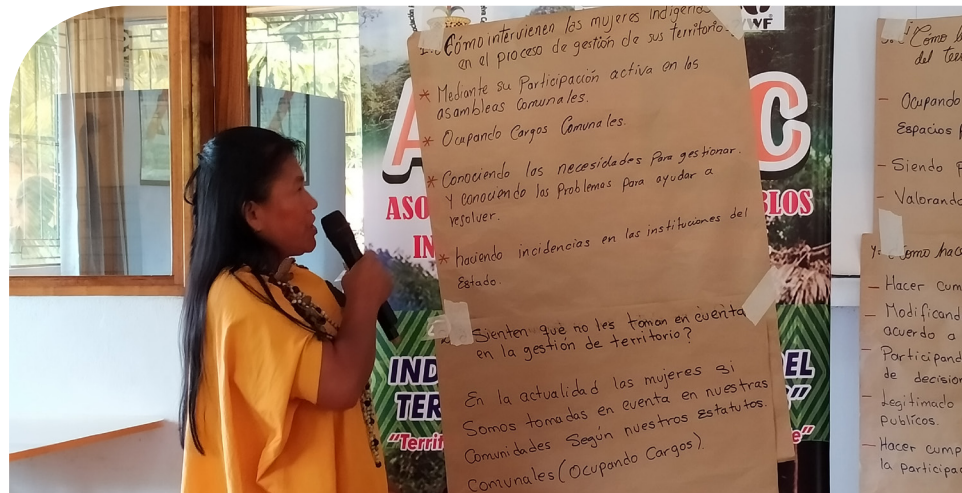 WWF
1.- Cómo intervienen las mujeres indígena
en el proceso de gestión de sus territorio
* Mediante su Participación activa en las
asambleas Comunales.
* Ocupando Cargos Comunales.
* Conociendo las necesidades Para gestionar.
Y Conociendo los Problemas Para ayudar a
resolver.
* haciendo incidencias en las instituciones del
Estado.
Sienten que no les toman en cuenta
en la gestión de territorio?
En la actualidad las mujeres si
Somos tomadas en cuenta en nuestras
Comunidades Según nuestros Estatutos.
Comunales (Ocupando Cargos).
A
C
ASO
BLOS
IN
IND
EL
TER
"Territ
e"
Cómo
del
- Ocupando
Espacios
- Siendo
- Valorando
Como hac
- Hacer cum
- Modificand
acuerdo a
- Participand
de decision
- Legitimado
Publicos.
- Hacer cump
la participac